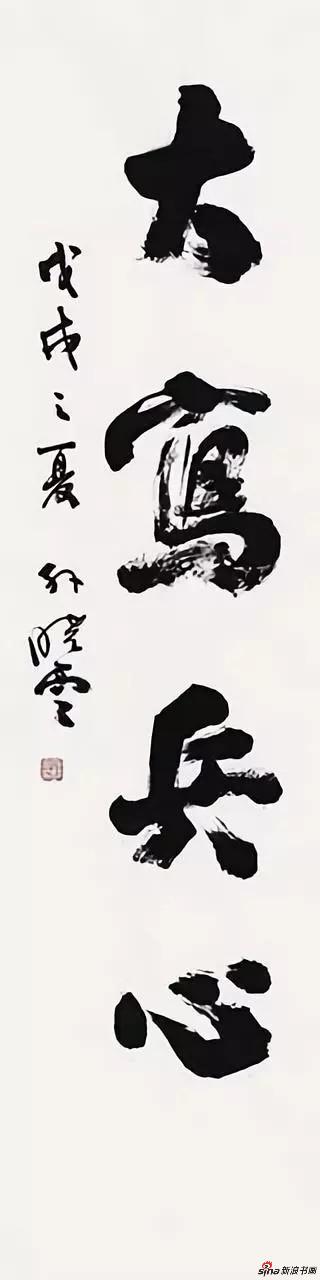 大寫兵心
戊戌之夏 孙晓雲
sina新浪书画